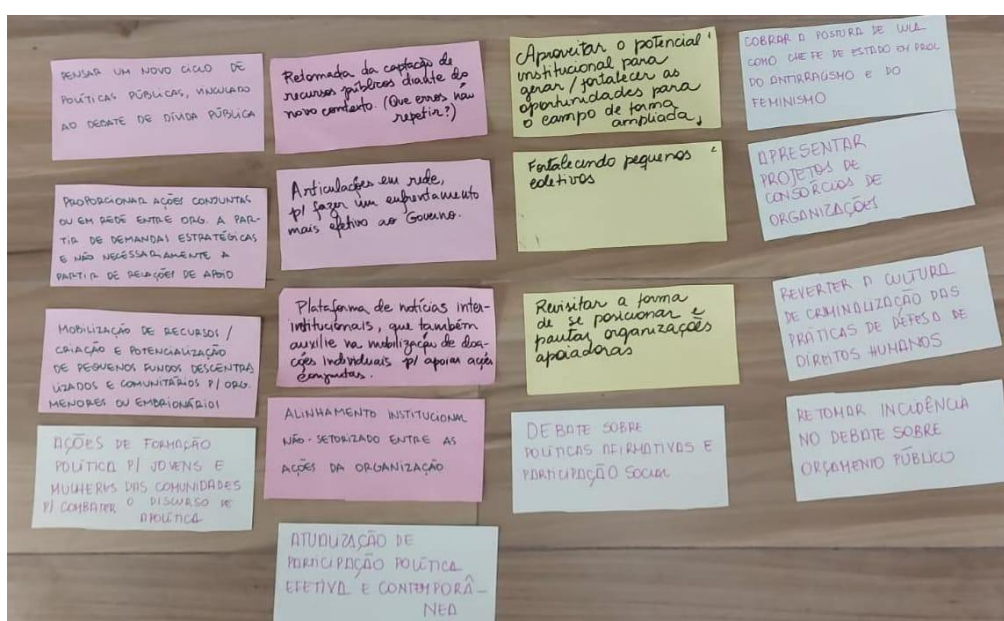 PENSAR UM NOVO CICLO DE
POLÍTICAS PÚBLICAS, VINCULADO
AO DEBATE DE DÍVIDA PÚBLICA
PROPORCIONAR AÇÕES CONJUNTAS
OU EM REDE ENTRE ORG. A PAR-
TIR DE DEMANDAS ESTRATÉGICAS
E NÃO NECESSARIAMENTE A
PARTIR DE RELAÇÕES DE APOIO
MOBILIZAÇÃO DE RECURSOS /
CRIAÇÃO E POTENCIALIZAÇÃO
DE PEQUENOS FUNDOS DESCENTRA
LIZADOS E COMUNITÁRIOS P/ ORG.
MENORES OU EMBRIONÁRIOS
AÇÕES DE FORMAÇÃO
POLÍTICA P/ JOVENS E
MULHERES DAS COMUNIDADES
P/ COMBATER O DISCURSO DE
APOLÍTICA
Retomada da captação de
recursos públicos diante do
novo contexto. (Que erros não
repetir?)
Articulações em rede,
p/ fazer um enfrentamento
mais efetivo ao Governo.
Plataforma de notícias inter-
institucionais, que também
auxilie na mobilização de doa-
ções individuais p/ apoiar ações
conjuntas.
ALINHAMENTO INSTITUCIONAL
NÃO-SETORIZADO ENTRE AS
AÇÕES DA ORGANIZAÇÃO
ATUALIZAÇÃO DE
PARTICIPAÇÃO POLÍTICA
EFETIVA E CONTEMPORÂ-
NEA
Aproveitar o potencial
institucional para
gerar / fortalecer as
oportunidades para
o campo de forma
ampliada.
Fortalecendo pequenos
coletivos
Revisitar a forma
de se posicionar e
pautar organizações
apoiadoras
DEBATE SOBRE
POLÍTICAS AFIRMATIVAS E
PARTICIPAÇÃO SOCIAL
COBRAR A POSTURA DE LULA
COMO CHEFE DE ESTADO EM PROL
DO ANTIRRACISMO E DO
FEMINISMO
APRESENTAR
PROJETOS DE
CONSÓRCIOS DE
ORGANIZAÇÕES
REVERTER A CULTURA
DE CRIMINALIZAÇÃO DAS
PRÁTICAS DE DEFESA DE
DIREITOS HUMANOS
RETOMAR INCIDÊNCIA
NO DEBATE SOBRE
ORÇAMENTO PÚBLICO